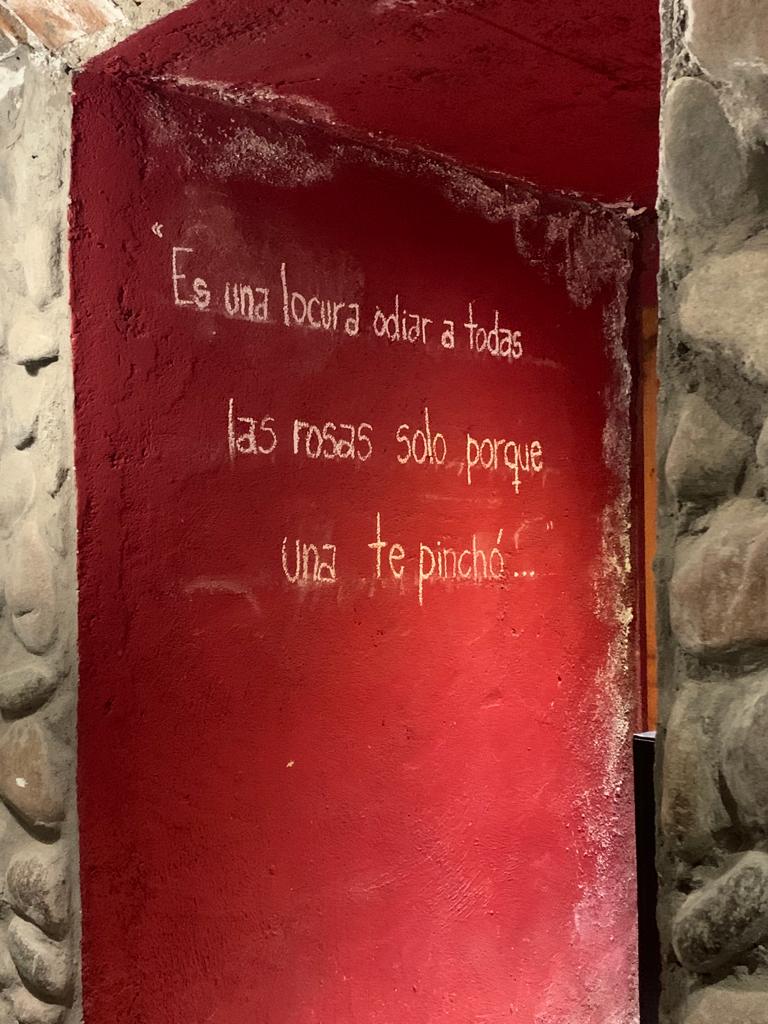 “Es una locura odiar a todas
las rosas solo porque
una te pinchó...”